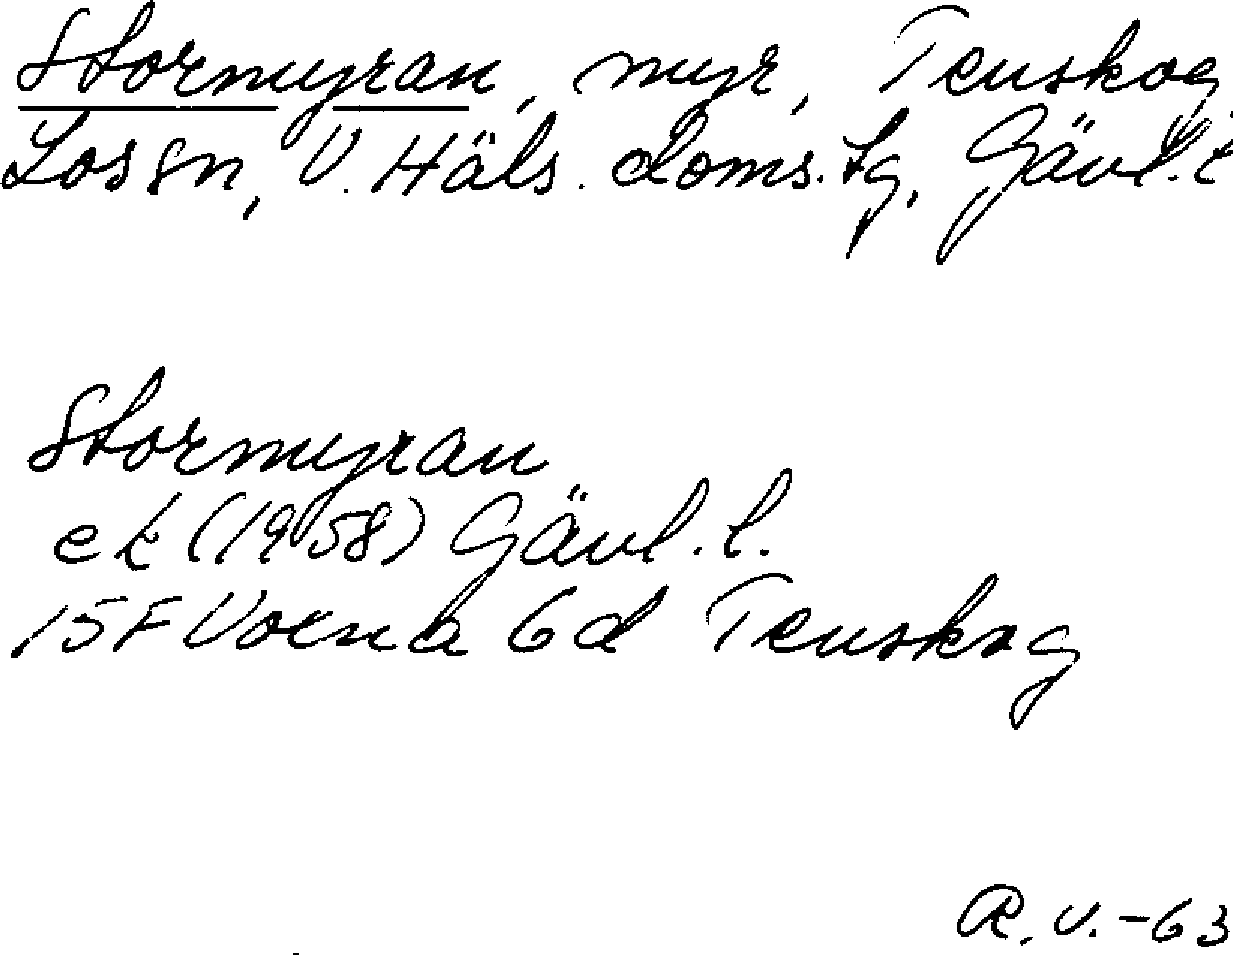 Stormyran, myr, Tenskog
Los sn, V. Häls. doms. tg, Gävl. l
Stormyran
ek (1958) Gävl. l.
15F Voxna 6d Tenskog
R. V. -63